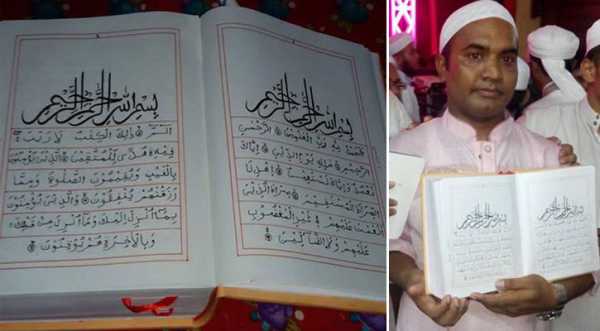 بسم الله الرحمن الرحيم
الحمد لله رب العلمين الرحمن
الرحيم ملك يوم الدين اياك
نعبد واياك نستعين اهدنا
الصراط المستقيم صراط الذين
انعمت عليهم غير المغضوب
عليهم ولا الضالين
بسم الله الرحمن الرحيم
الم ذلك الكتب لا ريب
فيه هدى للمتقين الذين يؤمنون
بالغيب ويقيمون الصلوة ومما
رزقنهم ينفقون والذين يؤمنون
بما انزل اليك وما انزل من قبلك
وبالاخرة هم يوقنون
بسم الله الرحمن الرحيم
بسم الله الرحمن الرحيم